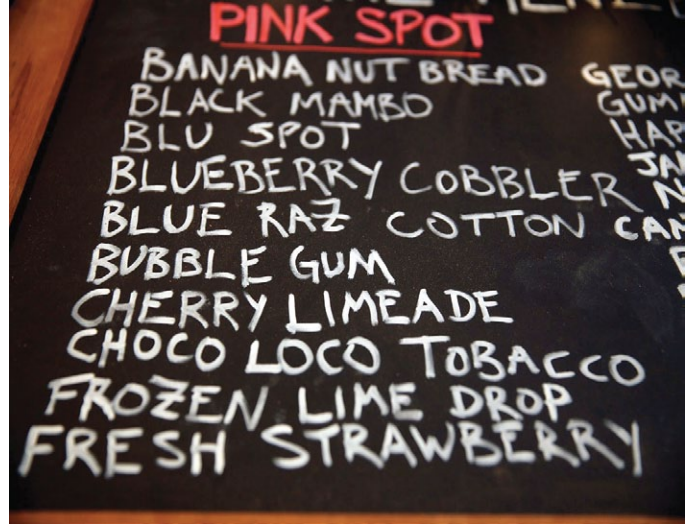 PINK SPOT
BANANA NUT BREAD
BLACK MAMBO
BLU SPOT
BLUEBERRY COBBLER
BLUE RAZ COTTON
BUBBLE GUM
CHERRY LIMEADE
CHOCO LOCO TOBACCO
FROZEN LIME DROP
FRESH STRAWBERRY